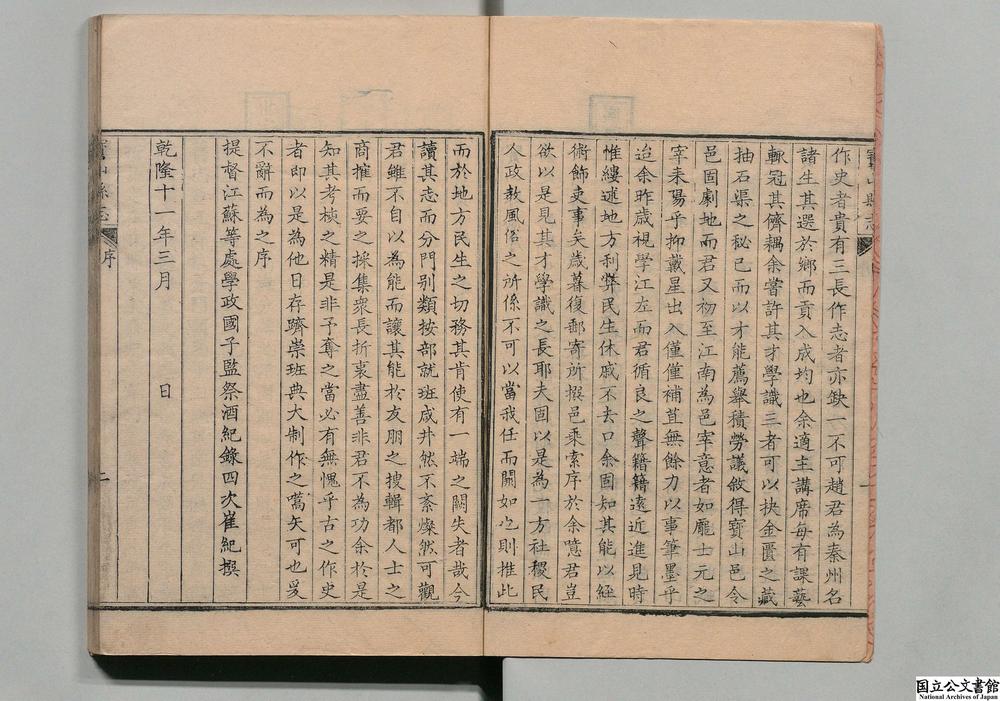 寳山縣志
作史者貴有三長作志者亦缺一不可趙君為秦州名
諸生其選於鄉而貢入成均也余適主講席每有課藝
輒冠其儕耦余嘗許其才學識三者可以抉金匱之藏
抽石渠之秘已而以才能薦舉積勞議敘得寶山邑令
邑固劇地而君又初至江南為邑宰意者如龐士元之
宰耒陽乎抑戴星出入僅僅補苴無餘力以事筆墨乎
迨余昨歲視學江左而君循良之聲籍籍遠近進見時
惟縷述地方利弊民生休戚不去口余固知其能以經
術飾吏事矣歲暮復郵寄所撰邑乘索序於余噫君豈
欲以是見其才學識之長耶夫固以是為一方社稷民
人政教風俗之所係不可以當我任而闕如也則推此
而於地方民生之切務其肯使有一端之闕失者哉今
讀其志而分門別類按部就班咸井然不紊燦然可觀
君雖不自以為能而讓其能於友朋之搜輯都人士之
商摧而要之採集衆長折衷盡善非君不為功余於是
知其考核之精是非予奪之當必有無愧乎古之作史
者即以是為他日存躋崇班典大制作之嚆矢可也爰
不辭而為之序
提督江蘇等處學政國子監祭酒紀錄四次崔紀撰
乾隆十一年三月　　　日
寳山縣志
序
二
国立公文書館
National Archives of Japan